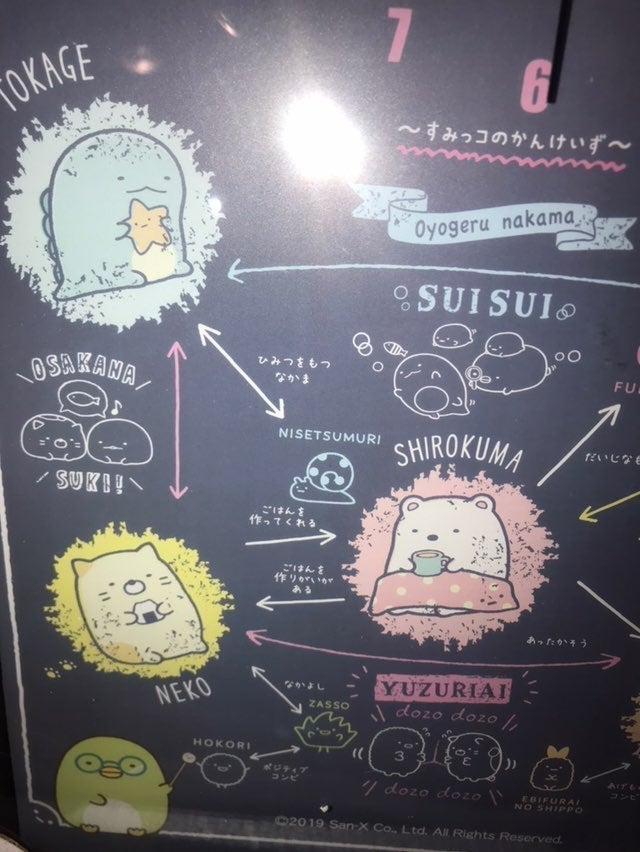 7
6
TOKAGE
～すみっコのかんけいず～
Oyogeru nakama
SUISUI
OSAKANA
SUKI!
ひみつをもつ
なかま
NISETSUMURI
SHIROKUMA
FU
だいじなも
ごはんを
作ってくれる
ごはんを
作りがいが
ある
NEKO
あったかそう
YUZURIAI
dozo dozo
dozo dozo
なかよし
ZASSO
HOKORI
ポジティブ
コンビ
EBIFURAI
NO SHIPPO
あげもの
コンビ
©2019 San-X Co., Ltd. All Rights Reserved.